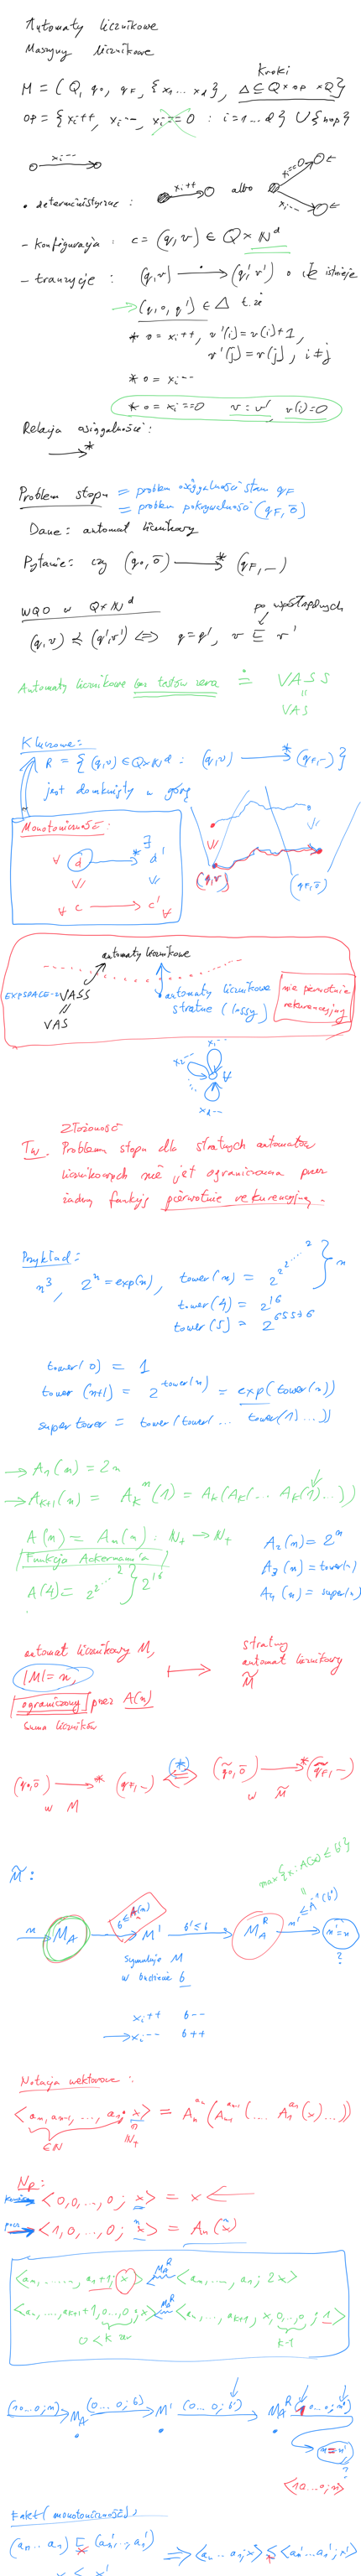 Automaty licznikowe
Maszyny licznikowe
Kroki
M = (Q, q0, qF, {x1 ... xd}, Δ ⊆ Q × op × Q)
op = {xi++, xi--, xi==0 : i=1...d} ∪ {nop}
xi--
• deterministyczne : xi++ albo xi==0 xi--
- konfiguracja : c = (q,v) ∈ Q × ℕ^d
- tranzycje : (q,v) → (q',v') o ile istnieje
→ (q,o,q') ∈ Δ t. że
* o = xi++, v'(i) = v(i)+1,
v'(j) = v(j), i≠j
* o = xi--
* o = xi==0 v = v', v(i)=0
Relacja osiągalności:
→*
Problem stopu = problem osiągalności stanu qF
= problem pokrywalności (qF, 0̄)
Dane: automat licznikowy
Pytanie: czy (q0, 0̄) →* (qF, _)
WQO w Q×ℕ^d po współrzędnych
(q,v) ≼ (q',v') ⟺ q=q', v ⊑ v'
Automaty licznikowe bez testów zera ≐ VASS
=
VAS
Kluczowe:
R = {(q,v) ∈ Q×ℕ^d : (q,v) →* (qF, _)}
jest domknięty w górę
Monotoniczność:
∀ d →* d' ∃
∀ c → c' ∀
(q,v) (qF, 0̄)
automaty licznikowe
EXPSPACE-z VASS
=
VAS
automaty licznikowe
stratne (lossy)
nie pierwotnie
rekurencyjny
x1--
x2--
xd--
∀
Złożoność
Tw. Problemu stopu dla stratnych automatów
licznikowych nie jest ograniczona przez
żadną funkcję pierwotnie rekurencyjną.
Przykład:
n^3, 2^n = exp(n), tower(n) = 2^2^2^...^2 } n
tower(4) = 2^16
tower(5) = 2^65536
tower(0) = 1
tower(n+1) = 2^tower(n) = exp(tower(n))
supertower = tower(tower(... tower(1)...))
→ A1(n) = 2n
→ Ak+1(n) = Ak^n(1) = Ak(Ak(... Ak(1)...))
A(n) = An(n) : ℕ+ → ℕ+
Funkcja Ackermanna
A(4) = 2^2^...^2 } 2^16
A2(n) = 2^n
A3(n) = tower(n)
A4(n) = super(n)
automat licznikowy M,
|M| = n,
ograniczony przez A(n)
suma liczników
↦
stratny
automat licznikowy
M̃
(q0, 0̄) →* (qF, _) (*) ⟺ (q̃0, 0̄) →* (q̃F, _)
w M w M̃
M̃ :
max{x : A(x) ≤ b'}
n → MA b ≤ A(n) → M' b' ≤ b → MA^R n' ≤ A^-1(b') → n' = n
?
symuluje M
w budżecie b
xi++ b--
→ xi-- b++
Notacja wektorowa :
⟨an, an-1, ..., a1; x⟩ = An^an(An-1^an-1(... A1^a1(x)...))
∈ℕ ℕ+
Np:
⟨0,0,...,0; x⟩ = x ←
⟨1,0,...,0; x⟩ = An(x)
⟨an, ......, a1+1; x⟩ MA^R ⟨an, ..., a1; 2x⟩
⟨an, ..., ak+1+1, 0...,0; x⟩ MA^R ⟨an, ..., ak+1, x, 0..,0; 1⟩
0<k k-1
(10...0; n) → MA (0...0; b) → M' (0...0; b') → MA^R (10...0; n')
n = n'
?
⟨10...0; n⟩
Fakt (monotoniczność)
(an .. a1) ⊑ (an', .. a1') ⟹ ⟨an .. a1; x⟩ ≤ ⟨an' ... a1'; x'⟩
x ≤ x'